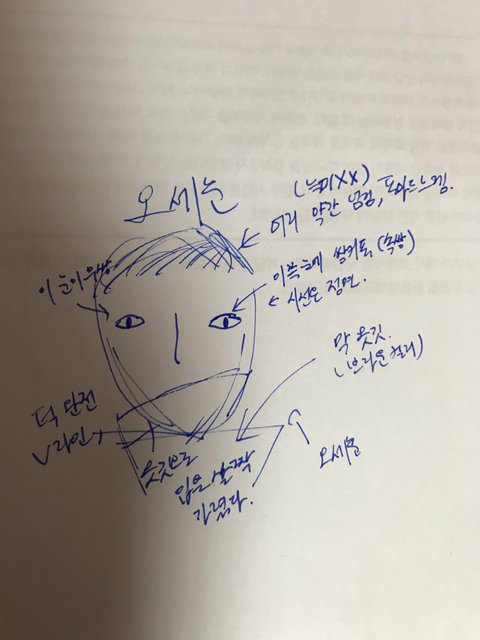 오세훈
(느끼XX)
머리 약간 넘김, 포마드느낌.
이 눈이 무쌍
이쪽눈에 쌍커풀(속쌍)
시선은 정면.
막 옷깃.
(브라운 컬러)
턱 완전
V라인
옷깃으로
입을 살짝
가렸다.
오세훈